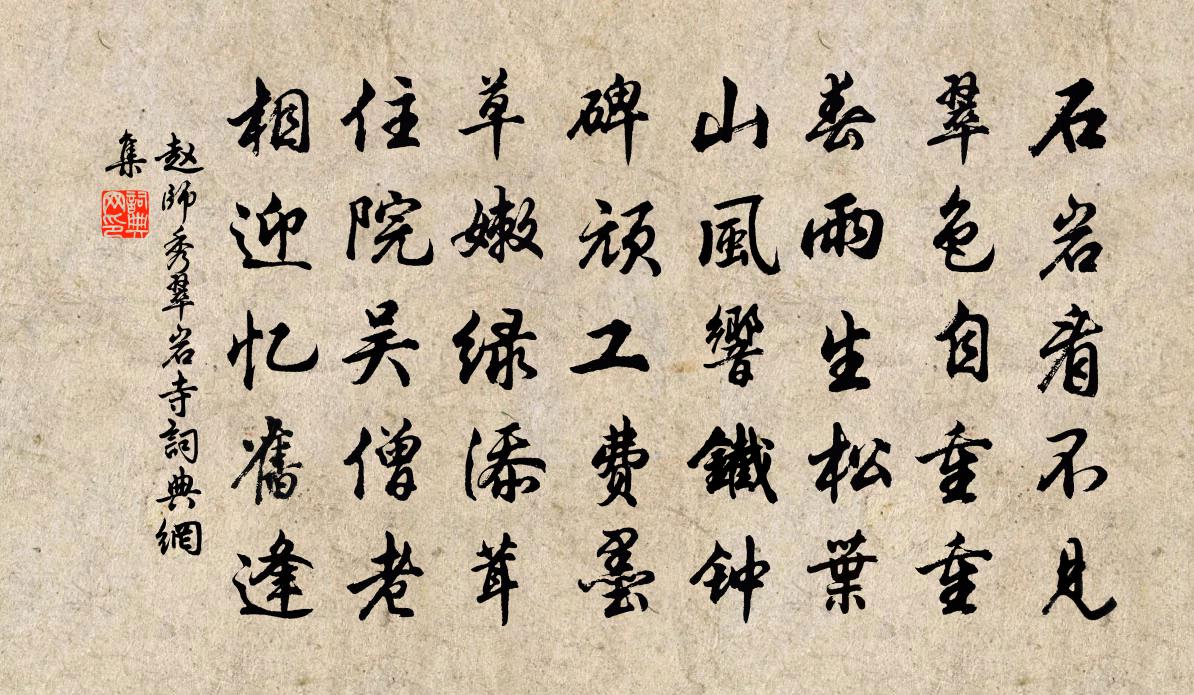 石岩看不见
翠色自重重
春雨生松葉
山風響鐵钟
碑頑工費墨
草嫩绿添茸
住院吴僧老
相迎忆舊逢
赵師秀翠岩寺詞典網
集
詞典
网印